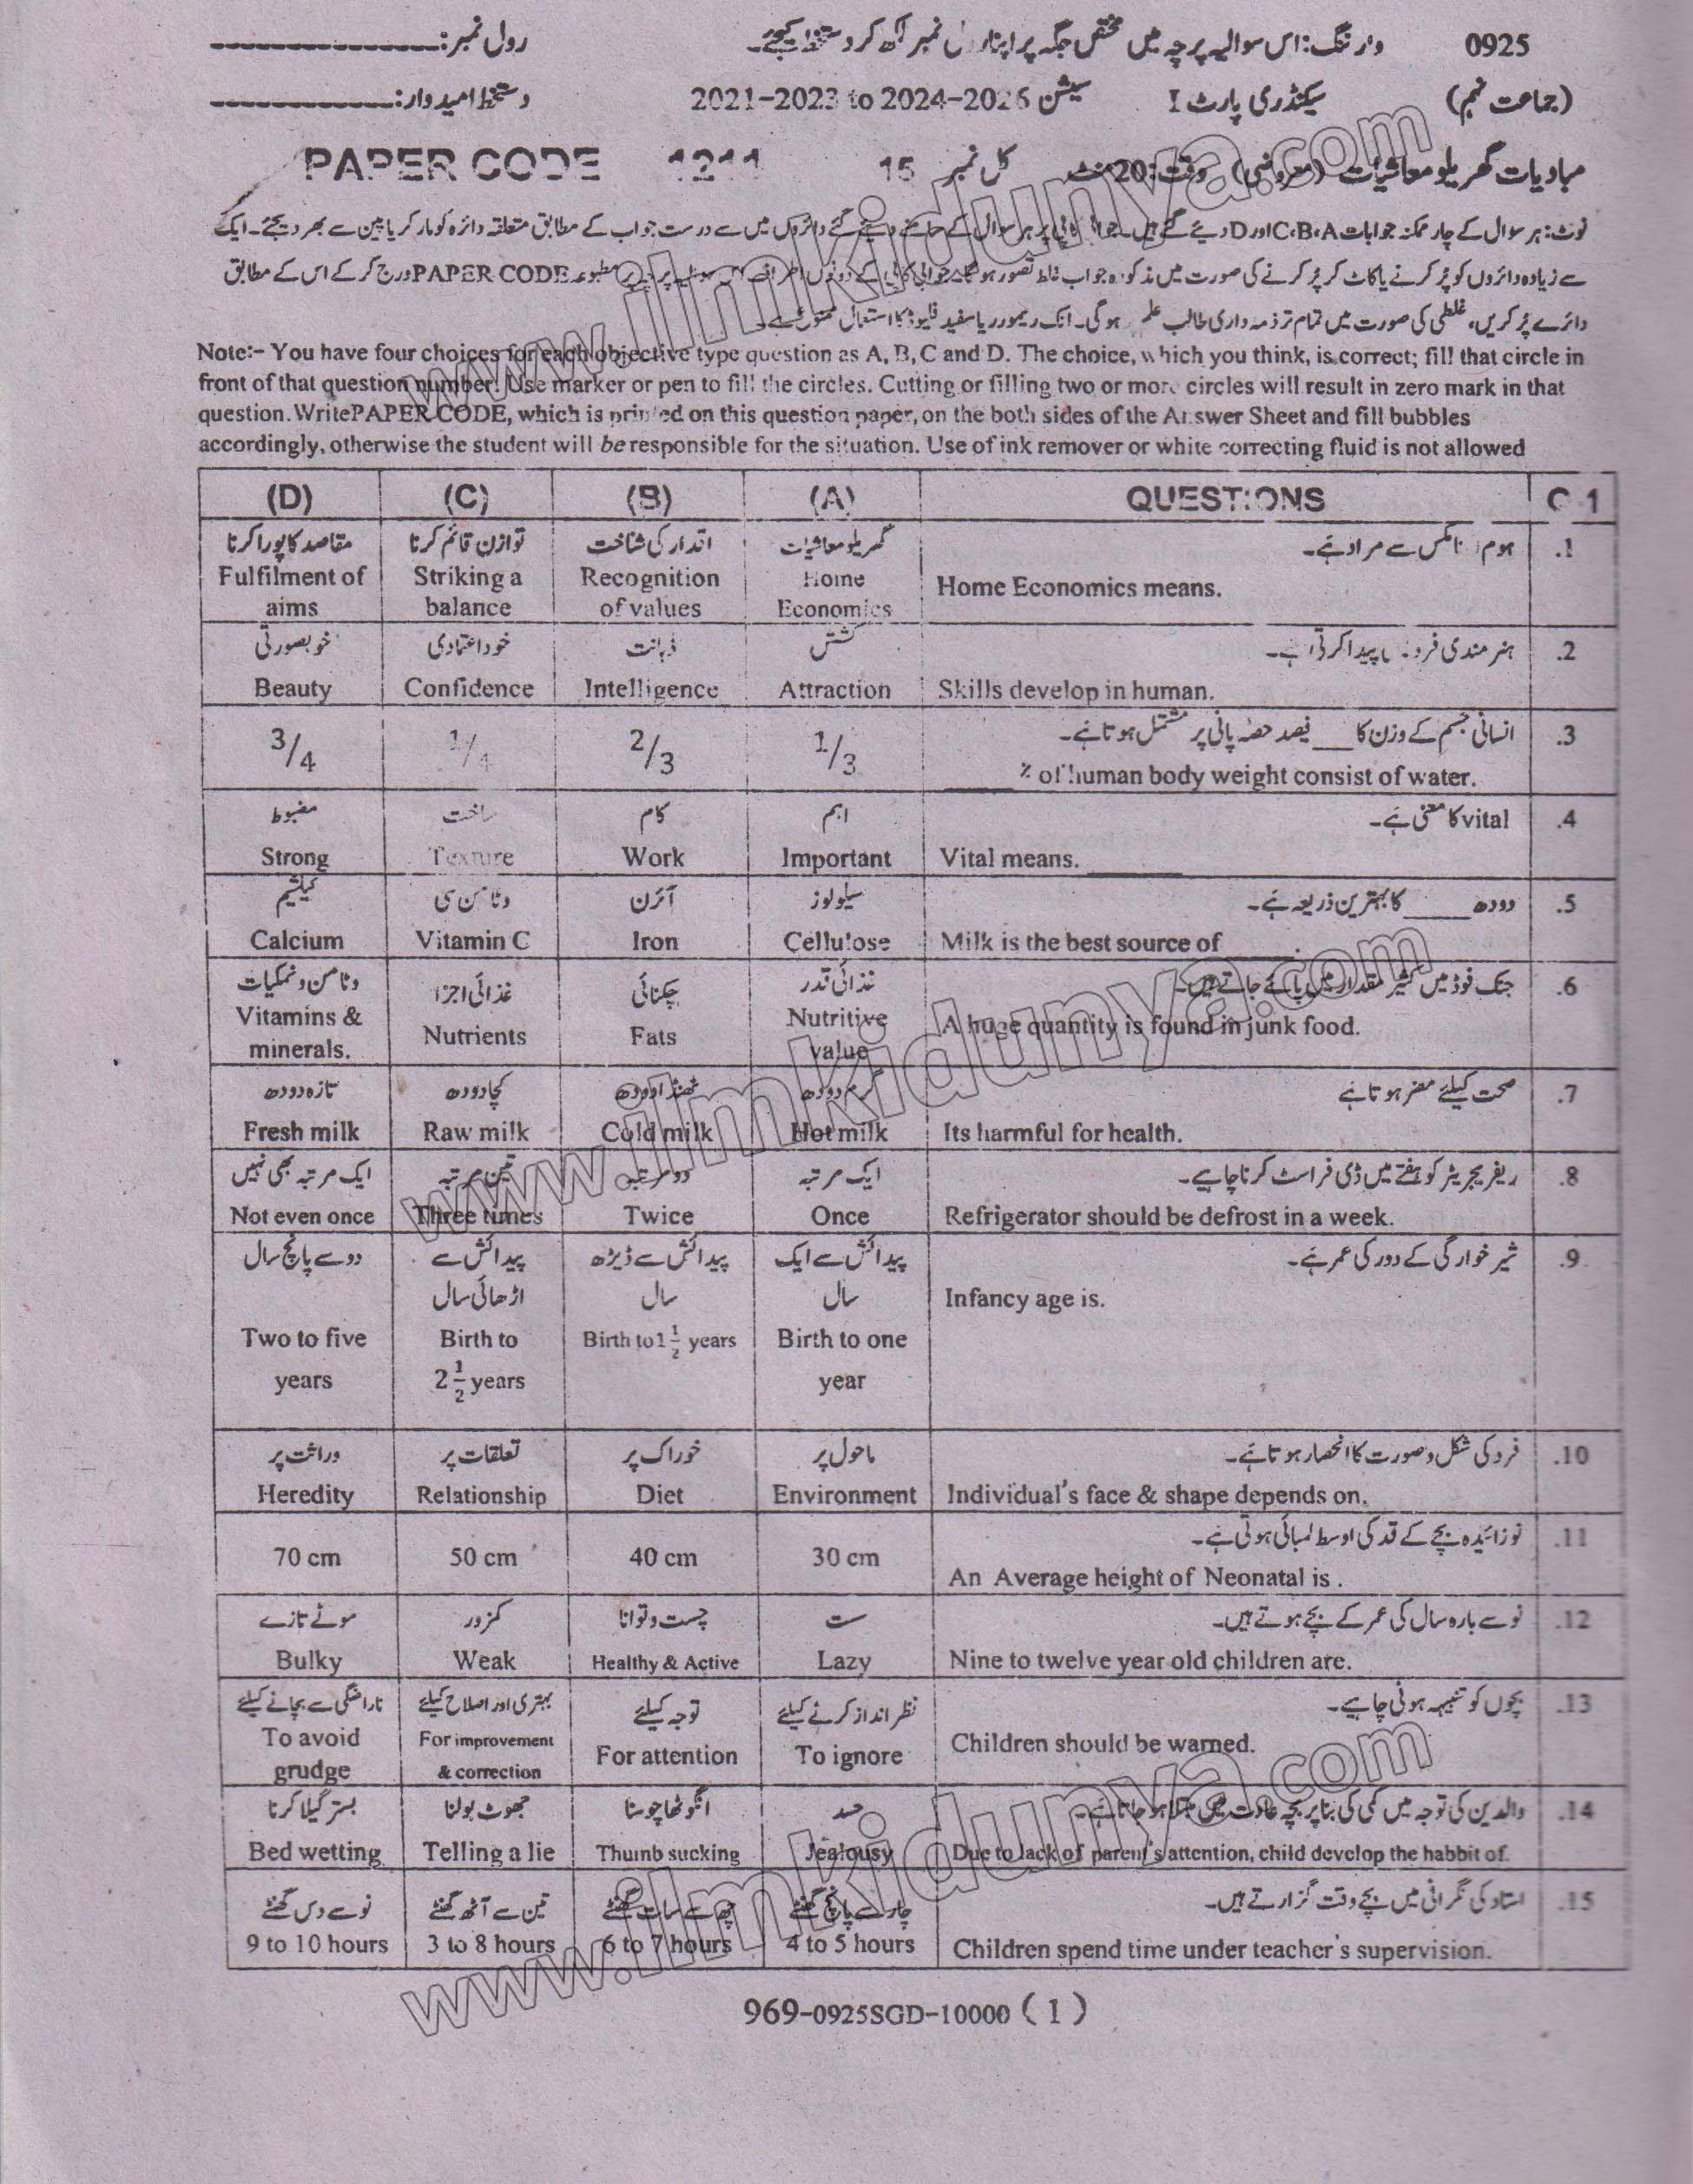 0925 وارننگ: اس سوالیہ پرچہ میں مختص جگہ پر اپنا رول نمبر لکھ کر دستخط کیجئے۔ رول نمبر:
(جماعت نہم) سیکنڈری پارٹ I سیشن 2021-2023 to 2024-2026 دستخط امیدوار:
مبادیات گھریلو معاشیات (معروضی) وقت: 20 منٹ کل نمبر 15 PAPER CODE 1211
نوٹ: ہر سوال کے چار ممکنہ جوابات C، B، A اور D دیئے گئے ہیں۔ جوابی کاپی پر ہر سوال کے سامنے دیئے گئے دائروں میں سے درست جواب کے مطابق متعلقہ دائرہ کو مارکر یا پین سے بھر دیجئے۔ ایک
سے زیادہ دائروں کو پُر کرنے یا کاٹ کر پُر کرنے کی صورت میں مذکورہ جواب غلط تصور ہوگا۔ جوابی کاپی کے دونوں اطراف اس سوالیہ پرچہ پر مطبوعہ PAPER CODE درج کر کے اس کے مطابق
دائرے پُر کریں، غلطی کی صورت میں تمام تر ذمہ داری طالب علم ہوگی۔ انک ریموور یا سفید فلیوڈ کا استعمال ممنوع ہے۔
Note:- You have four choices for each objective type question as A, B, C and D. The choice, which you think, is correct; fill that circle in
front of that question number. Use marker or pen to fill the circles. Cutting or filling two or more circles will result in zero mark in that
question. WritePAPER CODE, which is printed on this question paper, on the both sides of the Answer Sheet and fill bubbles
accordingly, otherwise the student will be responsible for the situation. Use of ink remover or white correcting fluid is not allowed
(D) (C) (B) (A) QUESTIONS Q 1
مقاصد کا پورا کرنا توازن قائم کرنا اقدار کی شناخت گھریلو معاشیات ہوم اکنامکس سے مراد ہے۔ .1
Fulfilment of aims Striking a balance Recognition of values Home Economics Home Economics means.
خوبصورتی خود اعتمادی ذہانت کشش ہنر مندی فرد میں پیدا کرتی ہے۔ .2
Beauty Confidence Intelligence Attraction Skills develop in human.
انسانی جسم کے وزن کا ___ فیصد حصہ پانی پر مشتمل ہوتا ہے۔ .3
3/4 1/4 2/3 1/3 _____ % of human body weight consist of water.
مضبوط ساخت کام اہم vital کا معنی ہے۔ .4
Strong Texture Work Important Vital means. _______
کیلشیم وٹامن سی آئرن سیلولوز دودھ _____ کا بہترین ذریعہ ہے۔ .5
Calcium Vitamin C Iron Cellulose Milk is the best source of _____.
وٹامن و نمکیات غذائی اجزا چکنائی غذائی قدر جنک فوڈ میں کثیر مقدار میں پائے جاتے ہیں۔ .6
Vitamins & minerals. Nutrients Fats Nutritive value A huge quantity is found in junk food.
تازہ دودھ کچا دودھ ٹھنڈا دودھ گرم دودھ صحت کیلئے مضر ہوتا ہے .7
Fresh milk Raw milk Cold milk Hot milk Its harmful for health.
ایک مرتبہ بھی نہیں تین مرتبہ دو مرتبہ ایک مرتبہ ریفریجریٹر کو ہفتے میں ڈی فراسٹ کرنا چاہیے۔ .8
Not even once Three times Twice Once Refrigerator should be defrost in a week.
دو سے پانچ سال پیدائش سے اڑھائی سال پیدائش سے ڈیڑھ سال پیدائش سے ایک سال شیر خوارگی کے دور کی عمر ہے۔ .9
Two to five years Birth to 2 1/2 years Birth to 1 1/2 years Birth to one year Infancy age is.
وراثت پر تعلقات پر خوراک پر ماحول پر فرد کی شکل و صورت کا انحصار ہوتا ہے۔ .10
Heredity Relationship Diet Environment Individual's face & shape depends on.
نوزائیدہ بچے کے قد کی اوسط لمبائی ہوتی ہے۔ .11
70 cm 50 cm 40 cm 30 cm An Average height of Neonatal is .
موٹے تازے کمزور چست و توانا سست نو سے بارہ سال کی عمر کے بچے ہوتے ہیں۔ .12
Bulky Weak Healthy & Active Lazy Nine to twelve year old children are.
ناراضگی سے بچانے کیلئے بہتری اور اصلاح کیلئے توجہ کیلئے نظر انداز کرنے کیلئے بچوں کو تنبیہہ ہونی چاہیے۔ .13
To avoid grudge For improvement & correction For attention To ignore Children should be warned.
بستر گیلا کرنا جھوٹ بولنا انگوٹھا چوسنا حسد والدین کی توجہ میں کمی کی بنا پر بچہ عادت میں مبتلا ہو جاتا ہے۔ .14
Bed wetting Telling a lie Thumb sucking Jealousy Due to lack of parent's attention, child develop the habbit of.
نو سے دس گھنٹے تین سے آٹھ گھنٹے چھ سے سات گھنٹے چار سے پانچ گھنٹے استاد کی نگرانی میں بچے وقت گزارتے ہیں۔ .15
9 to 10 hours 3 to 8 hours 6 to 7 hours 4 to 5 hours Children spend time under teacher's supervision.
969-0925SGD-10000 ( 1 )
www.ilmkidunya.com
www.ilmkidunya.com
www.ilmkidunya.com